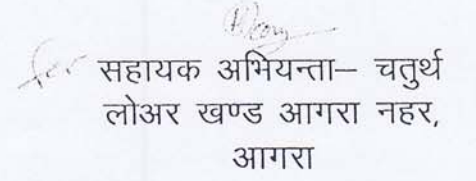 for सहायक अभियन्ता– चतुर्थ
लोअर खण्ड आगरा नहर,
आगरा